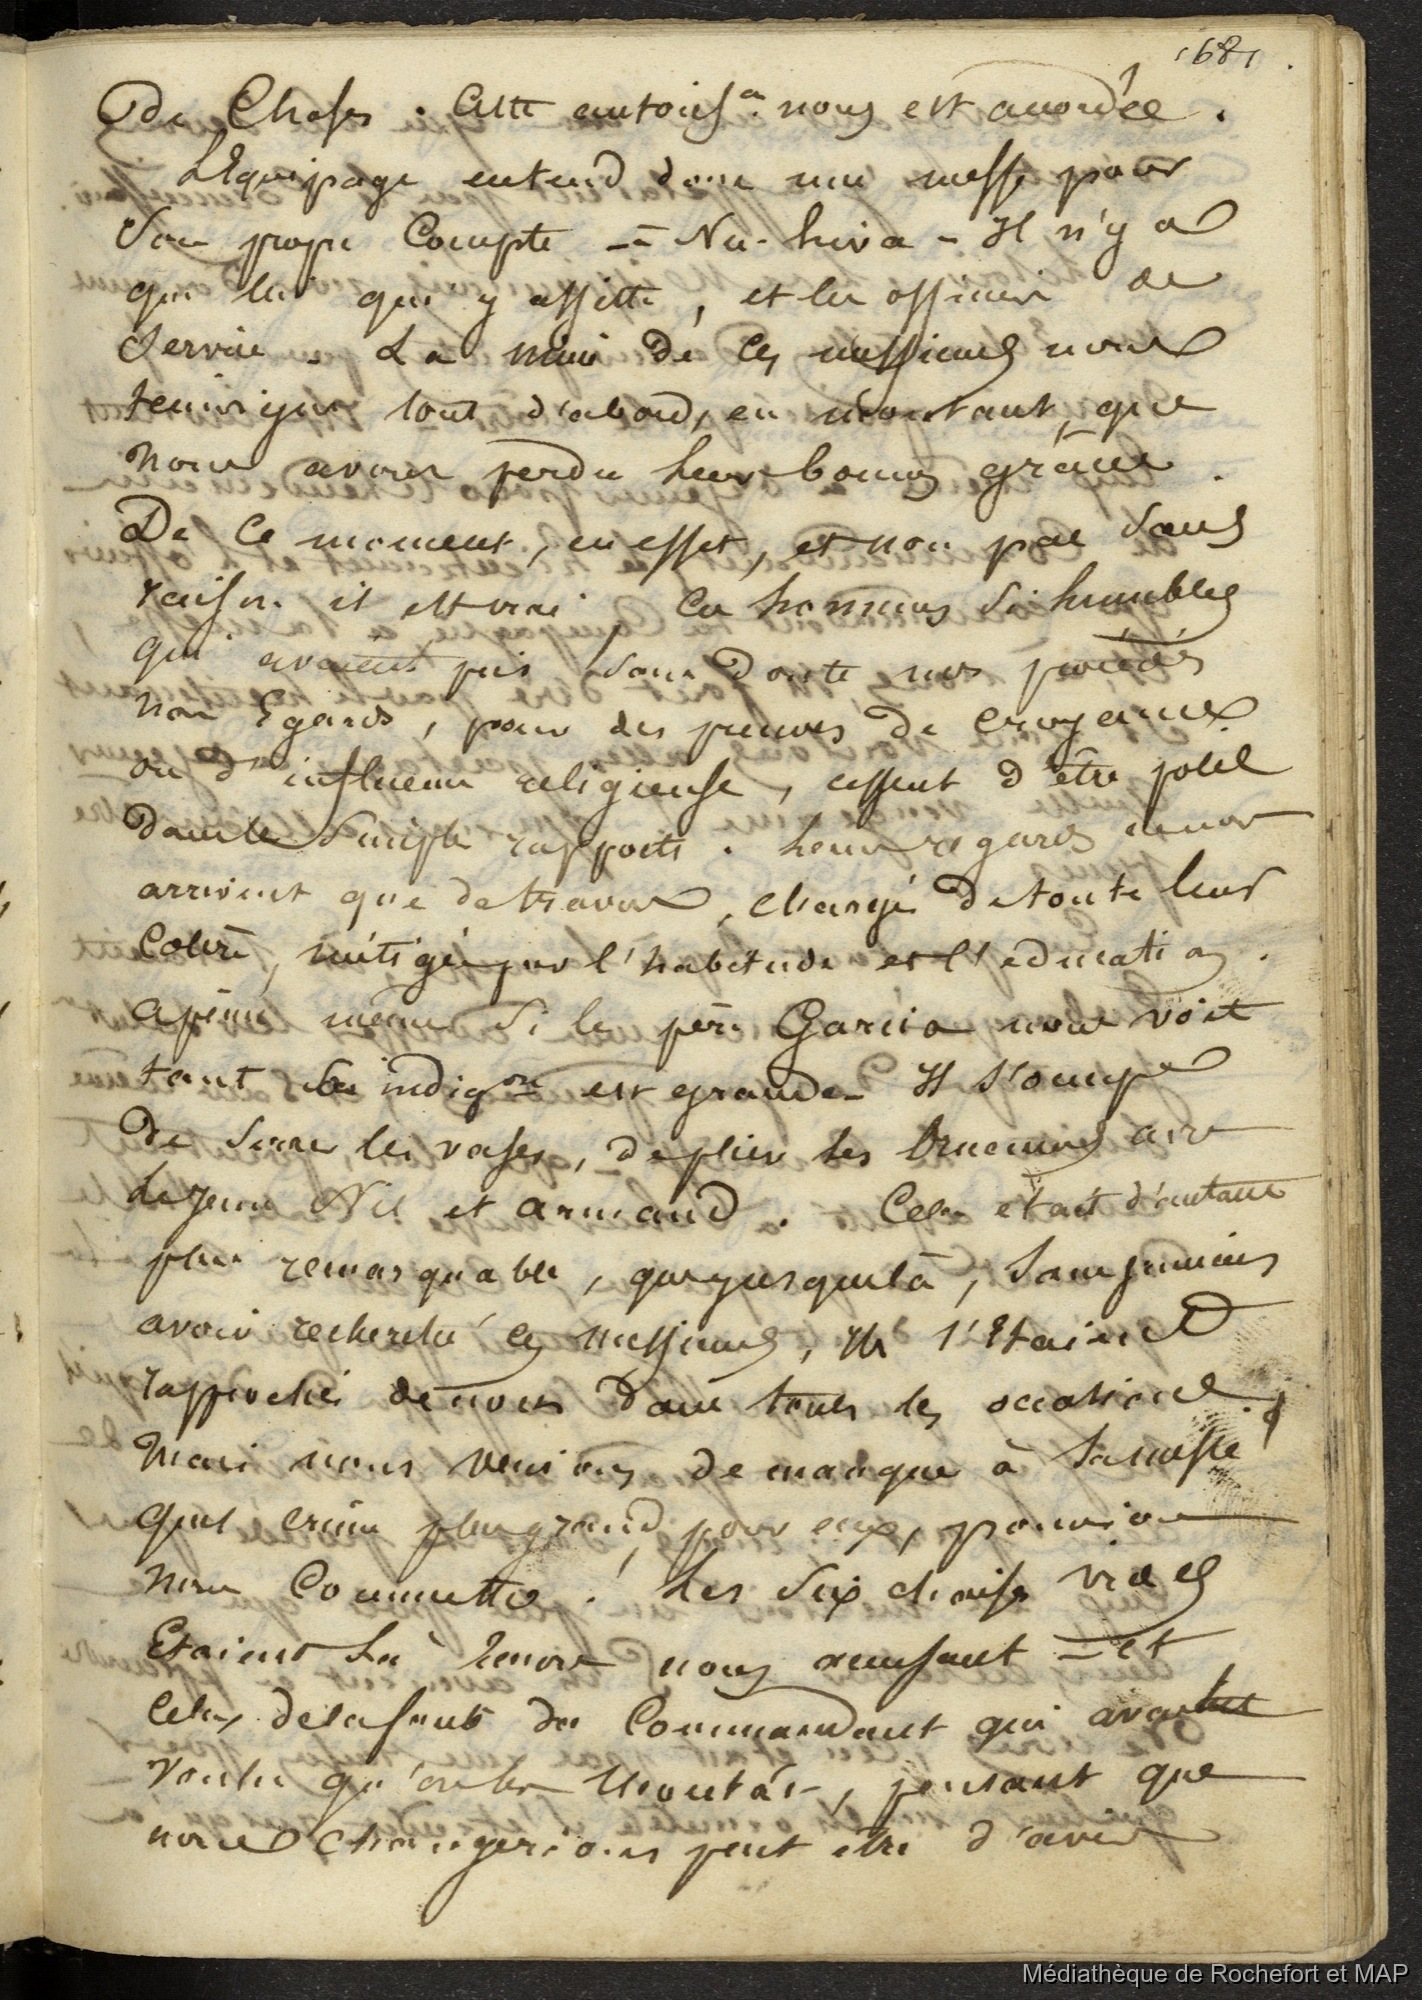 168,
de Choses. Cette autoris.on nous est accordée.
L'Equipage entend donc une messe pour
son propre Compte - à Nu-hiva - Il n'y a
que lui qui y assiste, et les officiers de
service. La mine de ces messieurs nous
temoigne tout d'abord, en montant, que
nous avons perdu leurs bonnes grâces.
De ce moment, en effet, et non pas sans
raison il est vrai, ces hommes si humbles
qui avaient pris sans doute nos procédés
nos Egards, pour des preuves de croyances
ou d'influence religieuse, cessent d'être polis
dans les simples rapports. Leurs regards à nous
arrivent que de travers, chargés de toute leur
Colère, mitigée par l'habitude et l'éducation.
apeine même si le père Garcia nous voit
tant son indig.on est grande - Il s'occupe
De serrer les vases, de plier les Ornemens avec
les jeunes Nil et armand. Cela était d'autant
plus remarquable, que jusques là, sans jamais
avoir recherché ces messieurs, Ils s'Etaient
rapprochés de nous dans toutes les occasions.
Mais nous venions de manquer à la messe
quel crime plus grand, pour eux, pouvions
nous Commettre ! Les six chaises vides
Etaient là encore nous accusant - et
Cela, de la faute du Commandant qui avait
voulu qu'on les montât, pensant que
nous changerions peut être d'avis
Médiathèque de Rochefort et MAP